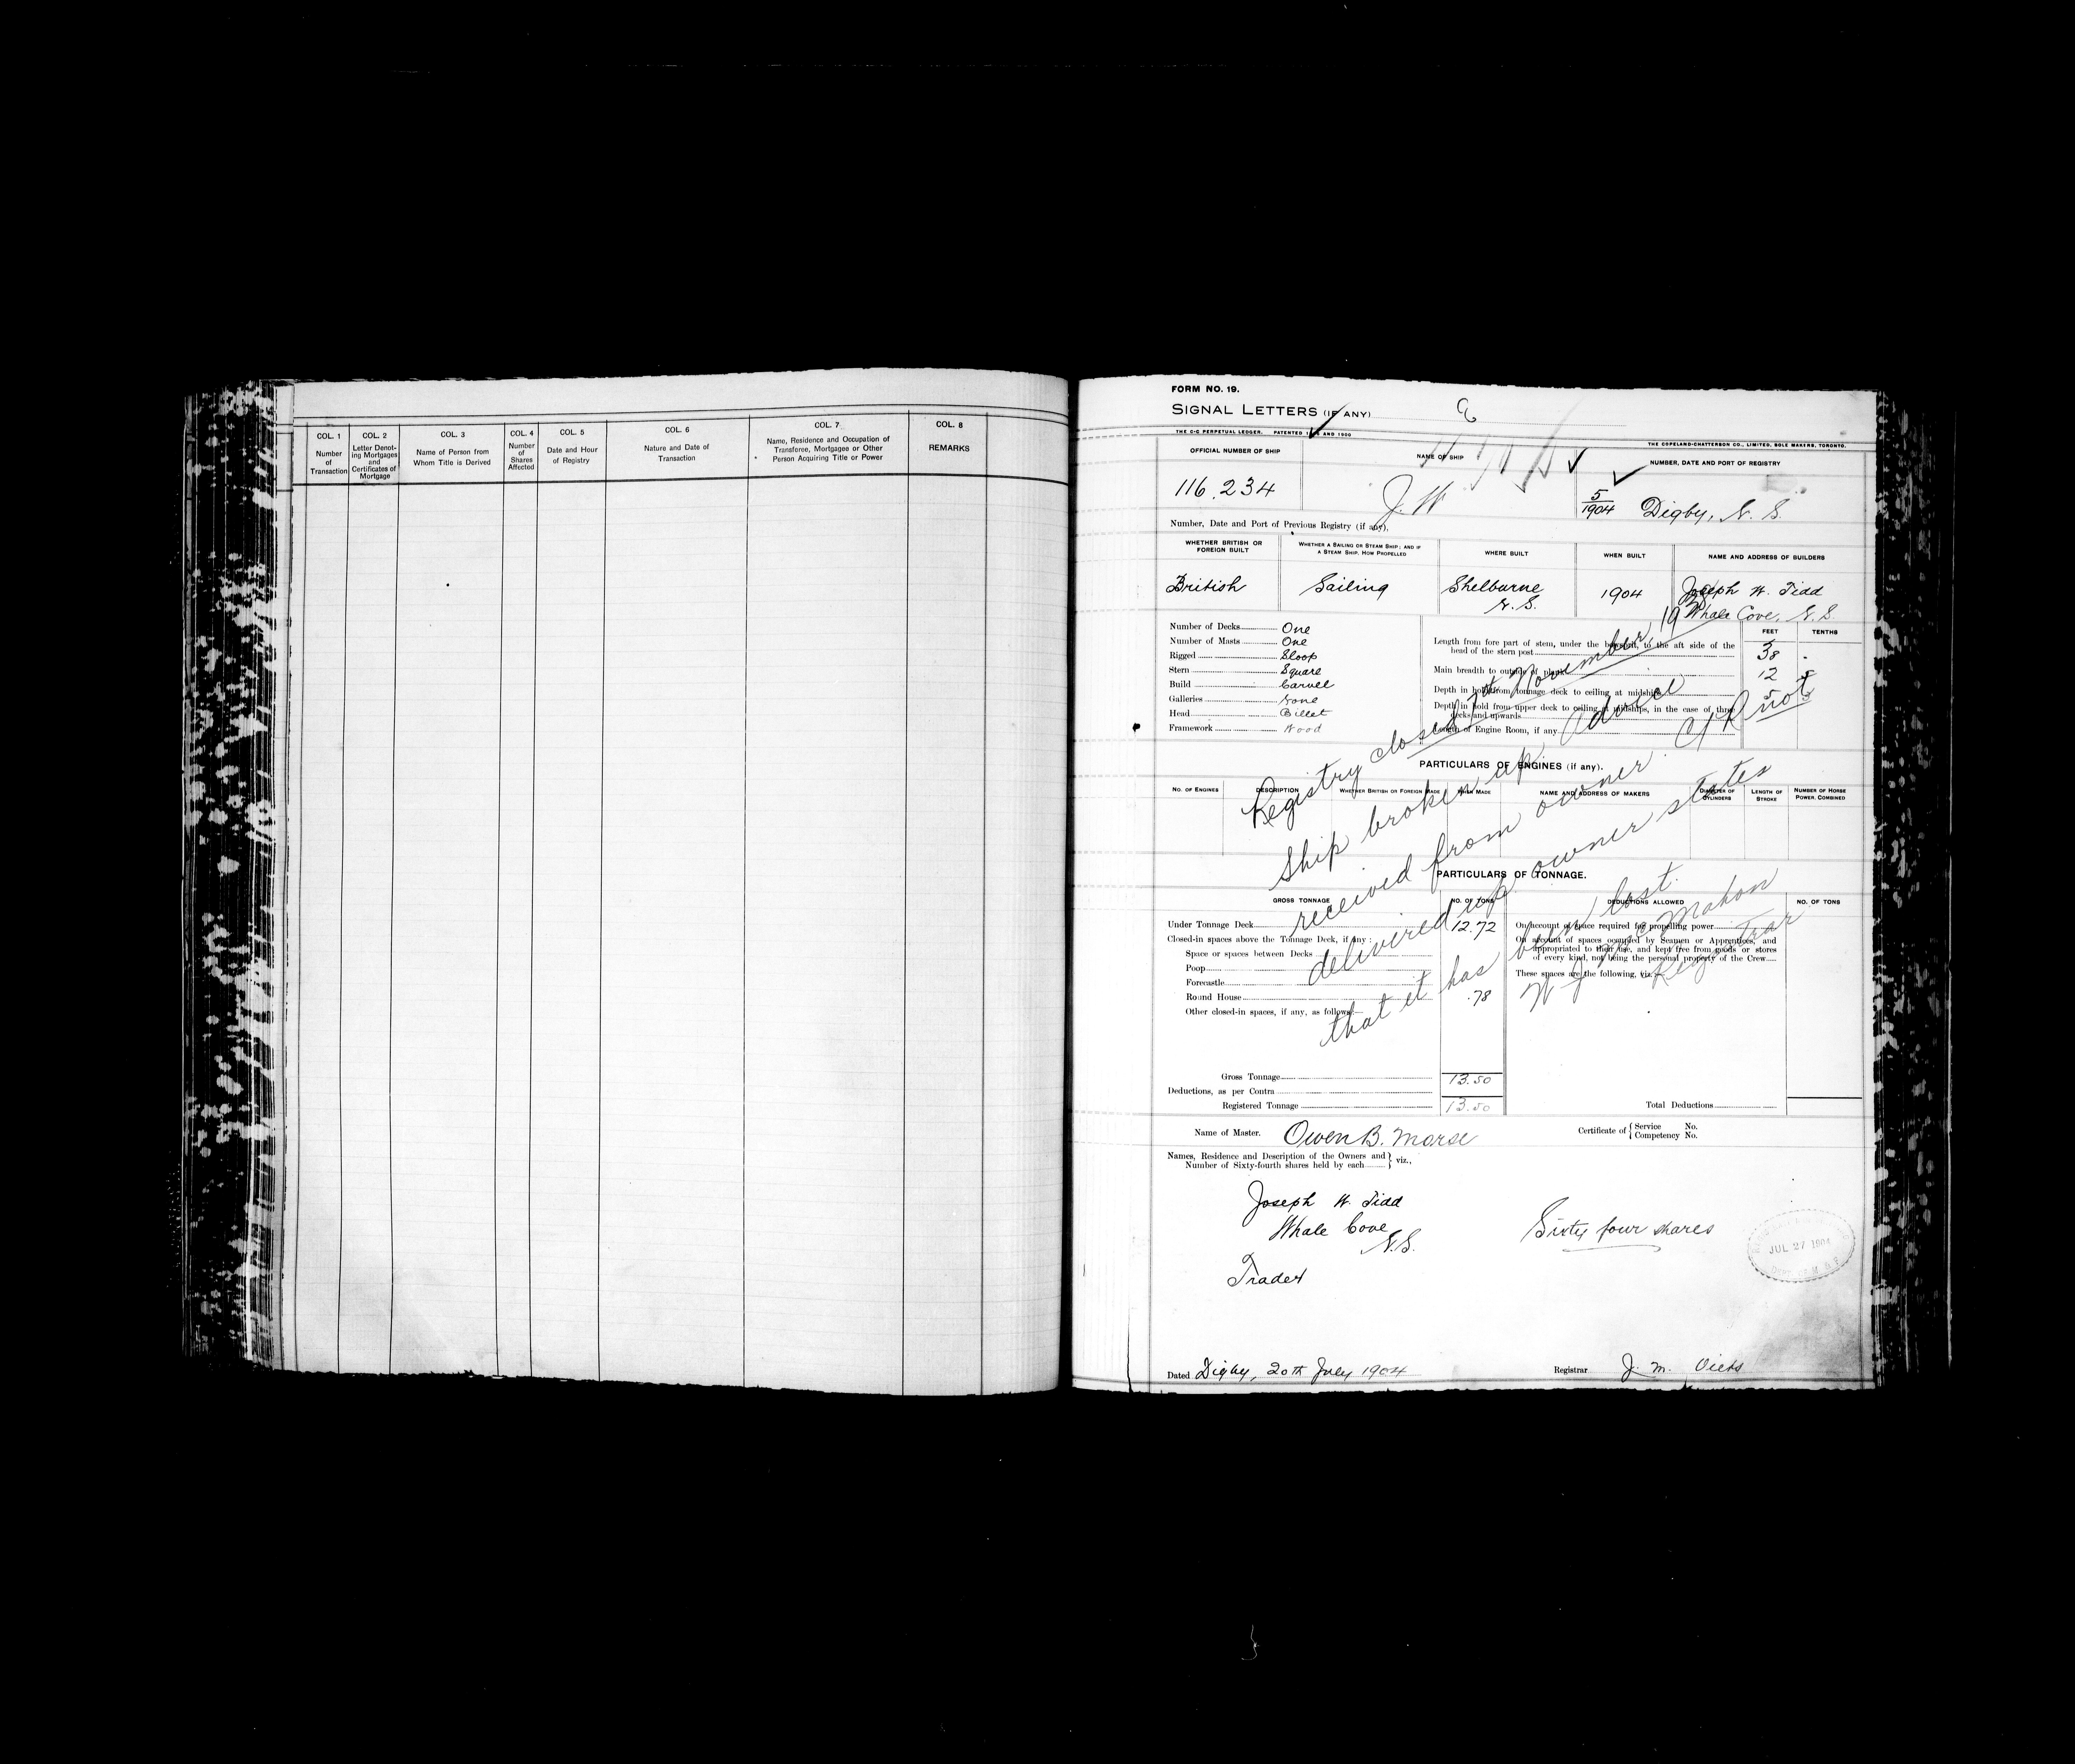 COL. 1
Number
of
Transaction
COL. 2
Letter Denot-
ing Mortgages
and
Certificates of
Mortgage
COL. 3
Name of Person from
Whom Title is Derived
COL. 4
Number
of
Shares
Affected
COL. 5
Date and Hour
of Registry
COL. 6
Nature and Date of
Transaction
COL. 7
Name, Residence and Occupation of
Transferee, Mortgagee or Other
Person Acquiring Title or Power
COL. 8
REMARKS
FORM NO. 19.
SIGNAL LETTERS (IF ANY)
THE C-C PERPETUAL LEDGER. PATENTED AND 1900
THE COPELAND-CHATTERSON CO., LIMITED, SOLE MAKERS, TORONTO.
OFFICIAL NUMBER OF SHIP
116,234
NAME OF SHIP
J. W
NUMBER, DATE AND PORT OF REGISTRY
5/1904 Digby, N. S.
Number, Date and Port of Previous Registry (if any),
WHETHER BRITISH OR
FOREIGN BUILT
British
WHETHER A SAILING OR STEAM SHIP; AND IF
A STEAM SHIP, HOW PROPELLED
Sailing
WHERE BUILT
Shelburne
N. S.
WHEN BUILT
1904
NAME AND ADDRESS OF BUILDERS
Joseph W. Tidd
Whale Cove, N. S.
Number of Decks One
Number of Masts One
Rigged Sloop
Stern Square
Build Carvel
Galleries None
Head Billet
Framework Wood
FEET TENTHS
Length from fore part of stem, under the bowsprit, to the aft side of the
head of the stern post 38 -
Main breadth to outside of plank 12
Depth in hold from tonnage deck to ceiling at midships 5
Depth in hold from upper deck to ceiling at midships, in the case of three
decks and upwards
Length of Engine Room, if any
Registry closed November, 19
Ship broken up. Advice
received from owner. C/R not
delivered up owner states
that it has been lost.
W J MacMahon
Registrar
PARTICULARS OF ENGINES (if any).
NO. OF ENGINES
DESCRIPTION
WHETHER BRITISH OR FOREIGN MADE
WHEN MADE
NAME AND ADDRESS OF MAKERS
DIAMETER OF
CYLINDERS
LENGTH OF
STROKE
NUMBER OF HORSE
POWER, COMBINED
PARTICULARS OF TONNAGE.
GROSS TONNAGE
NO. OF TONS
DEDUCTIONS ALLOWED
NO. OF TONS
Under Tonnage Deck 12.72
Closed-in spaces above the Tonnage Deck, if any:
Space or spaces between Decks
Poop
Forecastle
Round House .78
Other closed-in spaces, if any, as follows:—
On account of space required for propelling power
On account of spaces occupied by Seamen or Apprentices, and
appropriated to their use, and kept free from goods or stores
of every kind, not being the personal property of the Crew
These spaces are the following, viz.:
Gross Tonnage 13.50
Deductions, as per Contra
Registered Tonnage 13.50
Total Deductions
Name of Master. Owen B. Morse
Certificate of { Service No.
Competency No.
Names, Residence and Description of the Owners and
Number of Sixty-fourth shares held by each } viz.,
Joseph W. Tidd
Whale Cove
N.S.
Trader
Sixty four shares
JUL 27 1904
Dated Digby, 20th July 1904
Registrar J. M. Viets